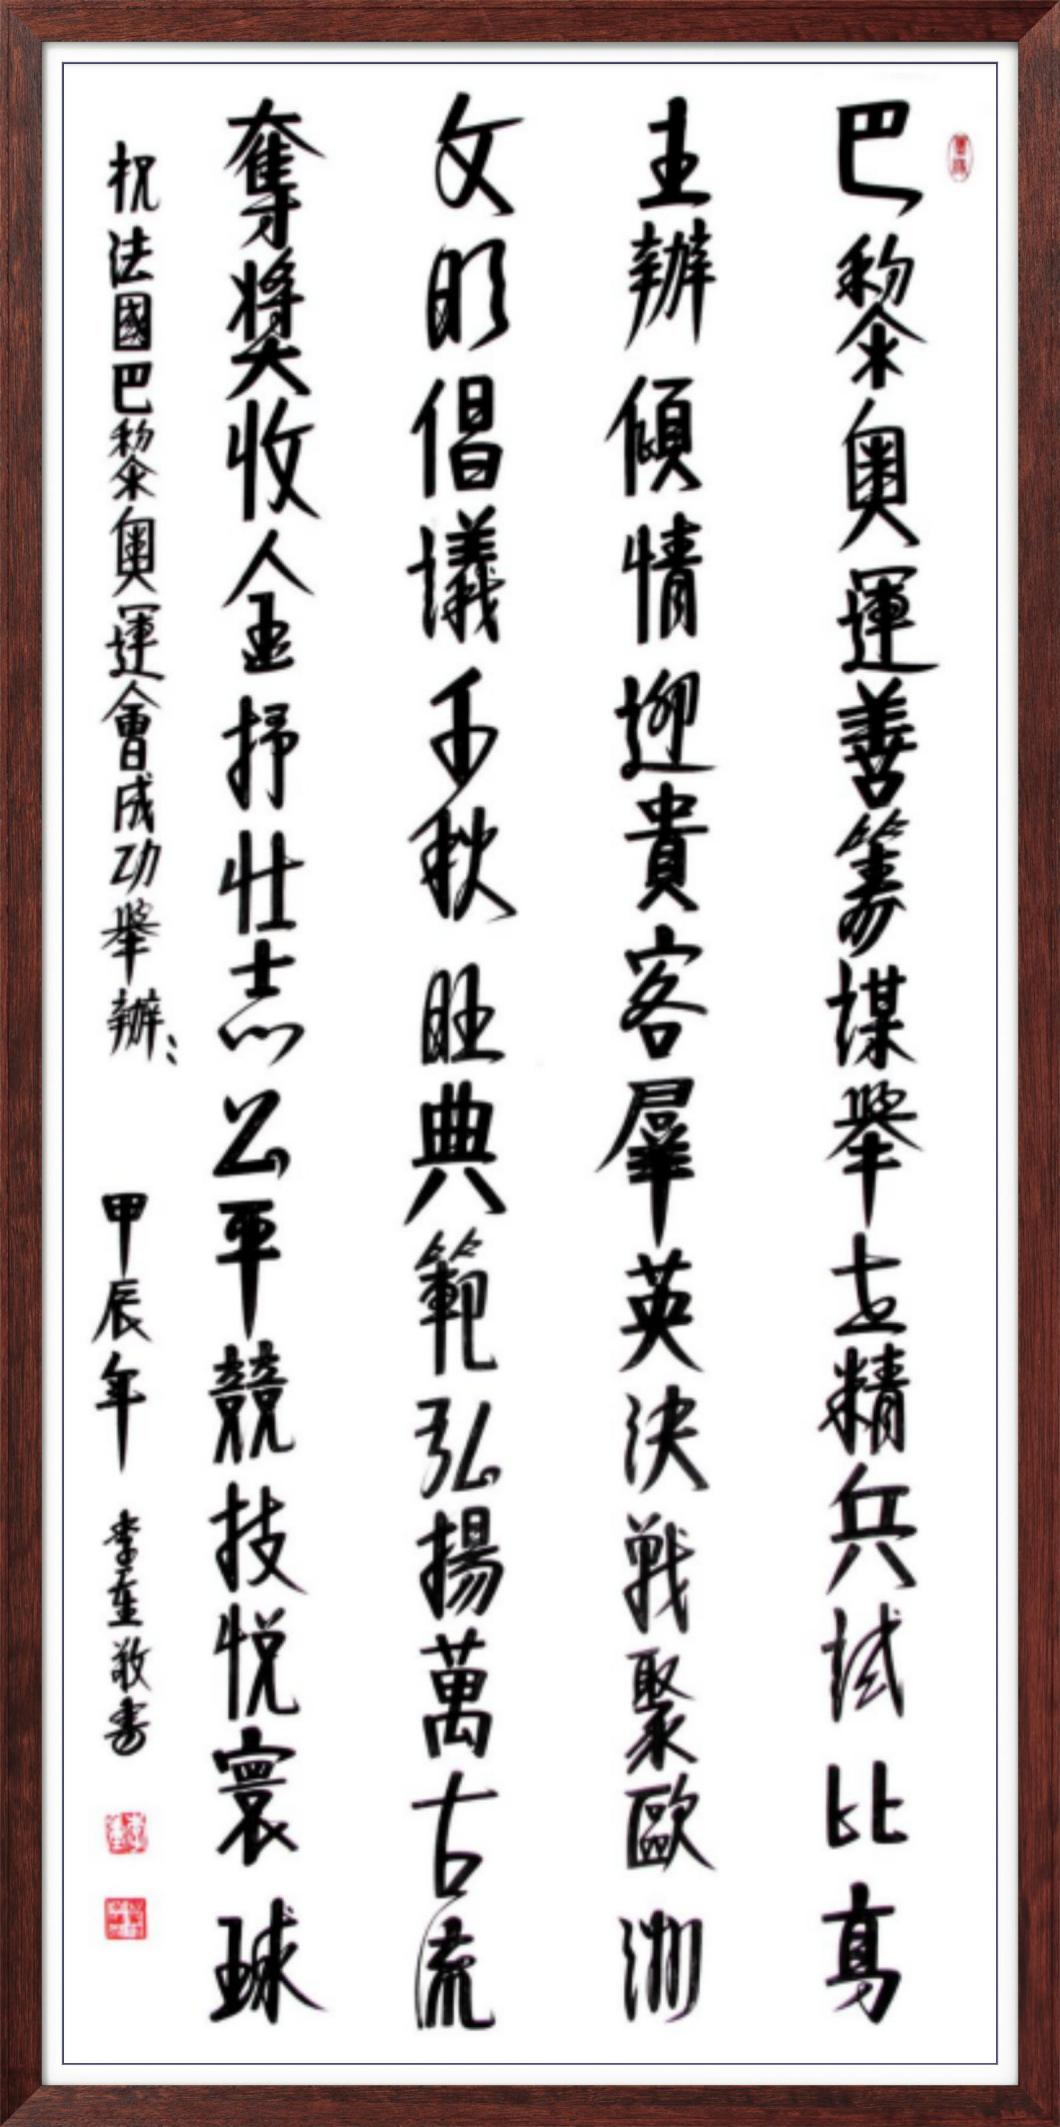 巴黎奧運善籌謀舉世精兵試比高
主辦傾情迎貴客羣英決戰聚歐洲
文明倡議千秋旺典範弘揚萬古流
奪獎收金抒壯志公平競技悅寰球
祝法國巴黎奧運會成功舉辦 甲辰年 李重敬書